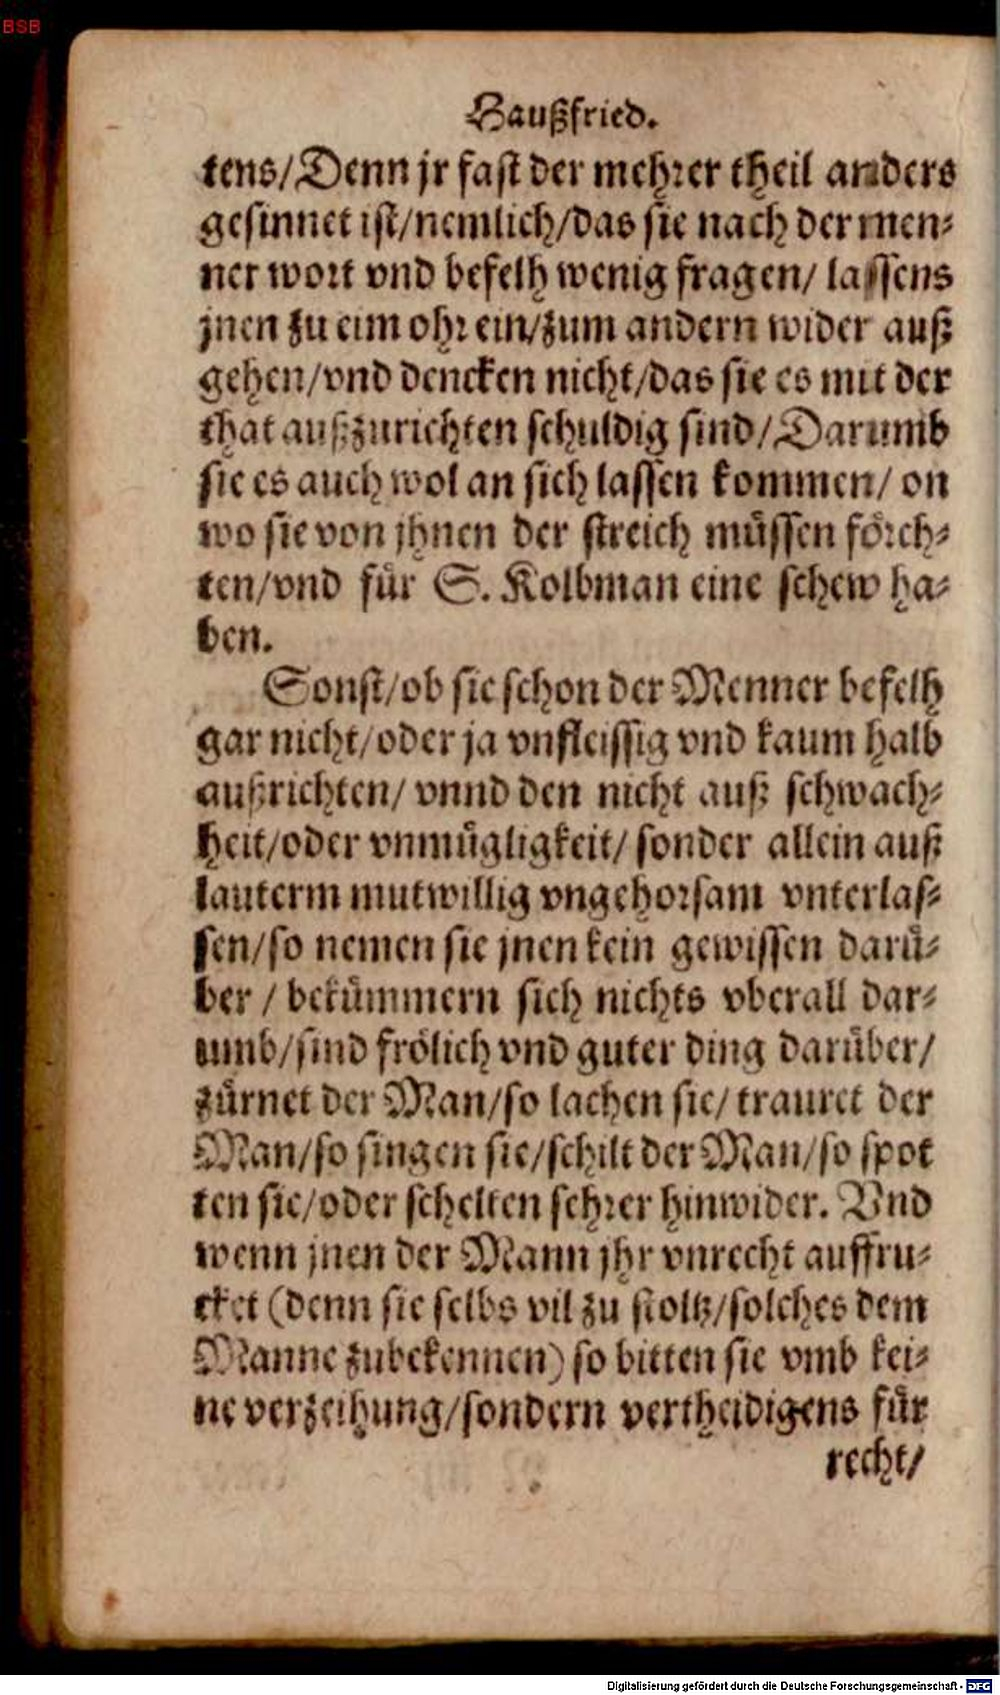 BSB
Haußfried.
tens/Denn jr fast der mehrer theil anders
gesinnet ist/nemlich/das sie nach der men⸗
ner wort vnd befelh wenig fragen/ lassens
jnen zu eim ohr ein/zum andern wider auß
gehen/vnd dencken nicht/das sie es mit der
that außzurichten schuldig sind/Darumb
sie es auch wol an sich lassen kommen/ on
wo sie von jhnen der streich müssen förch⸗
ten/vnd für S. Kolbman eine schew ha⸗
ben.
Sonst/ob sie schon der Menner befelh
gar nicht/oder ja vnfleissig vnd kaum halb
außrichten/ vnnd den nicht auß schwach⸗
heit/oder vnmügligkeit/ sonder allein auß
lauterm mutwillig vngehorsam vnterlas⸗
sen/so nemen sie jnen kein gewissen darü⸗
ber / bekümmern sich nichts vberall dar⸗
umb/sind frölich vnd guter ding darüber/
zürnet der Man/so lachen sie/ trauret der
Man/so singen sie/schilt der Man/so spot
ten sie/oder schelten sehrer hinwider. Vnd
wenn jnen der Mann jhr vnrecht auffru⸗
cket (denn sie selbs vil zu stoltz/solches dem
Manne zubekennen) so bitten sie vmb kei⸗
ne verzeihung/sondern vertheidigens für
recht/
Digitalisierung gefördert durch die Deutsche Forschungsgemeinschaft - DFG